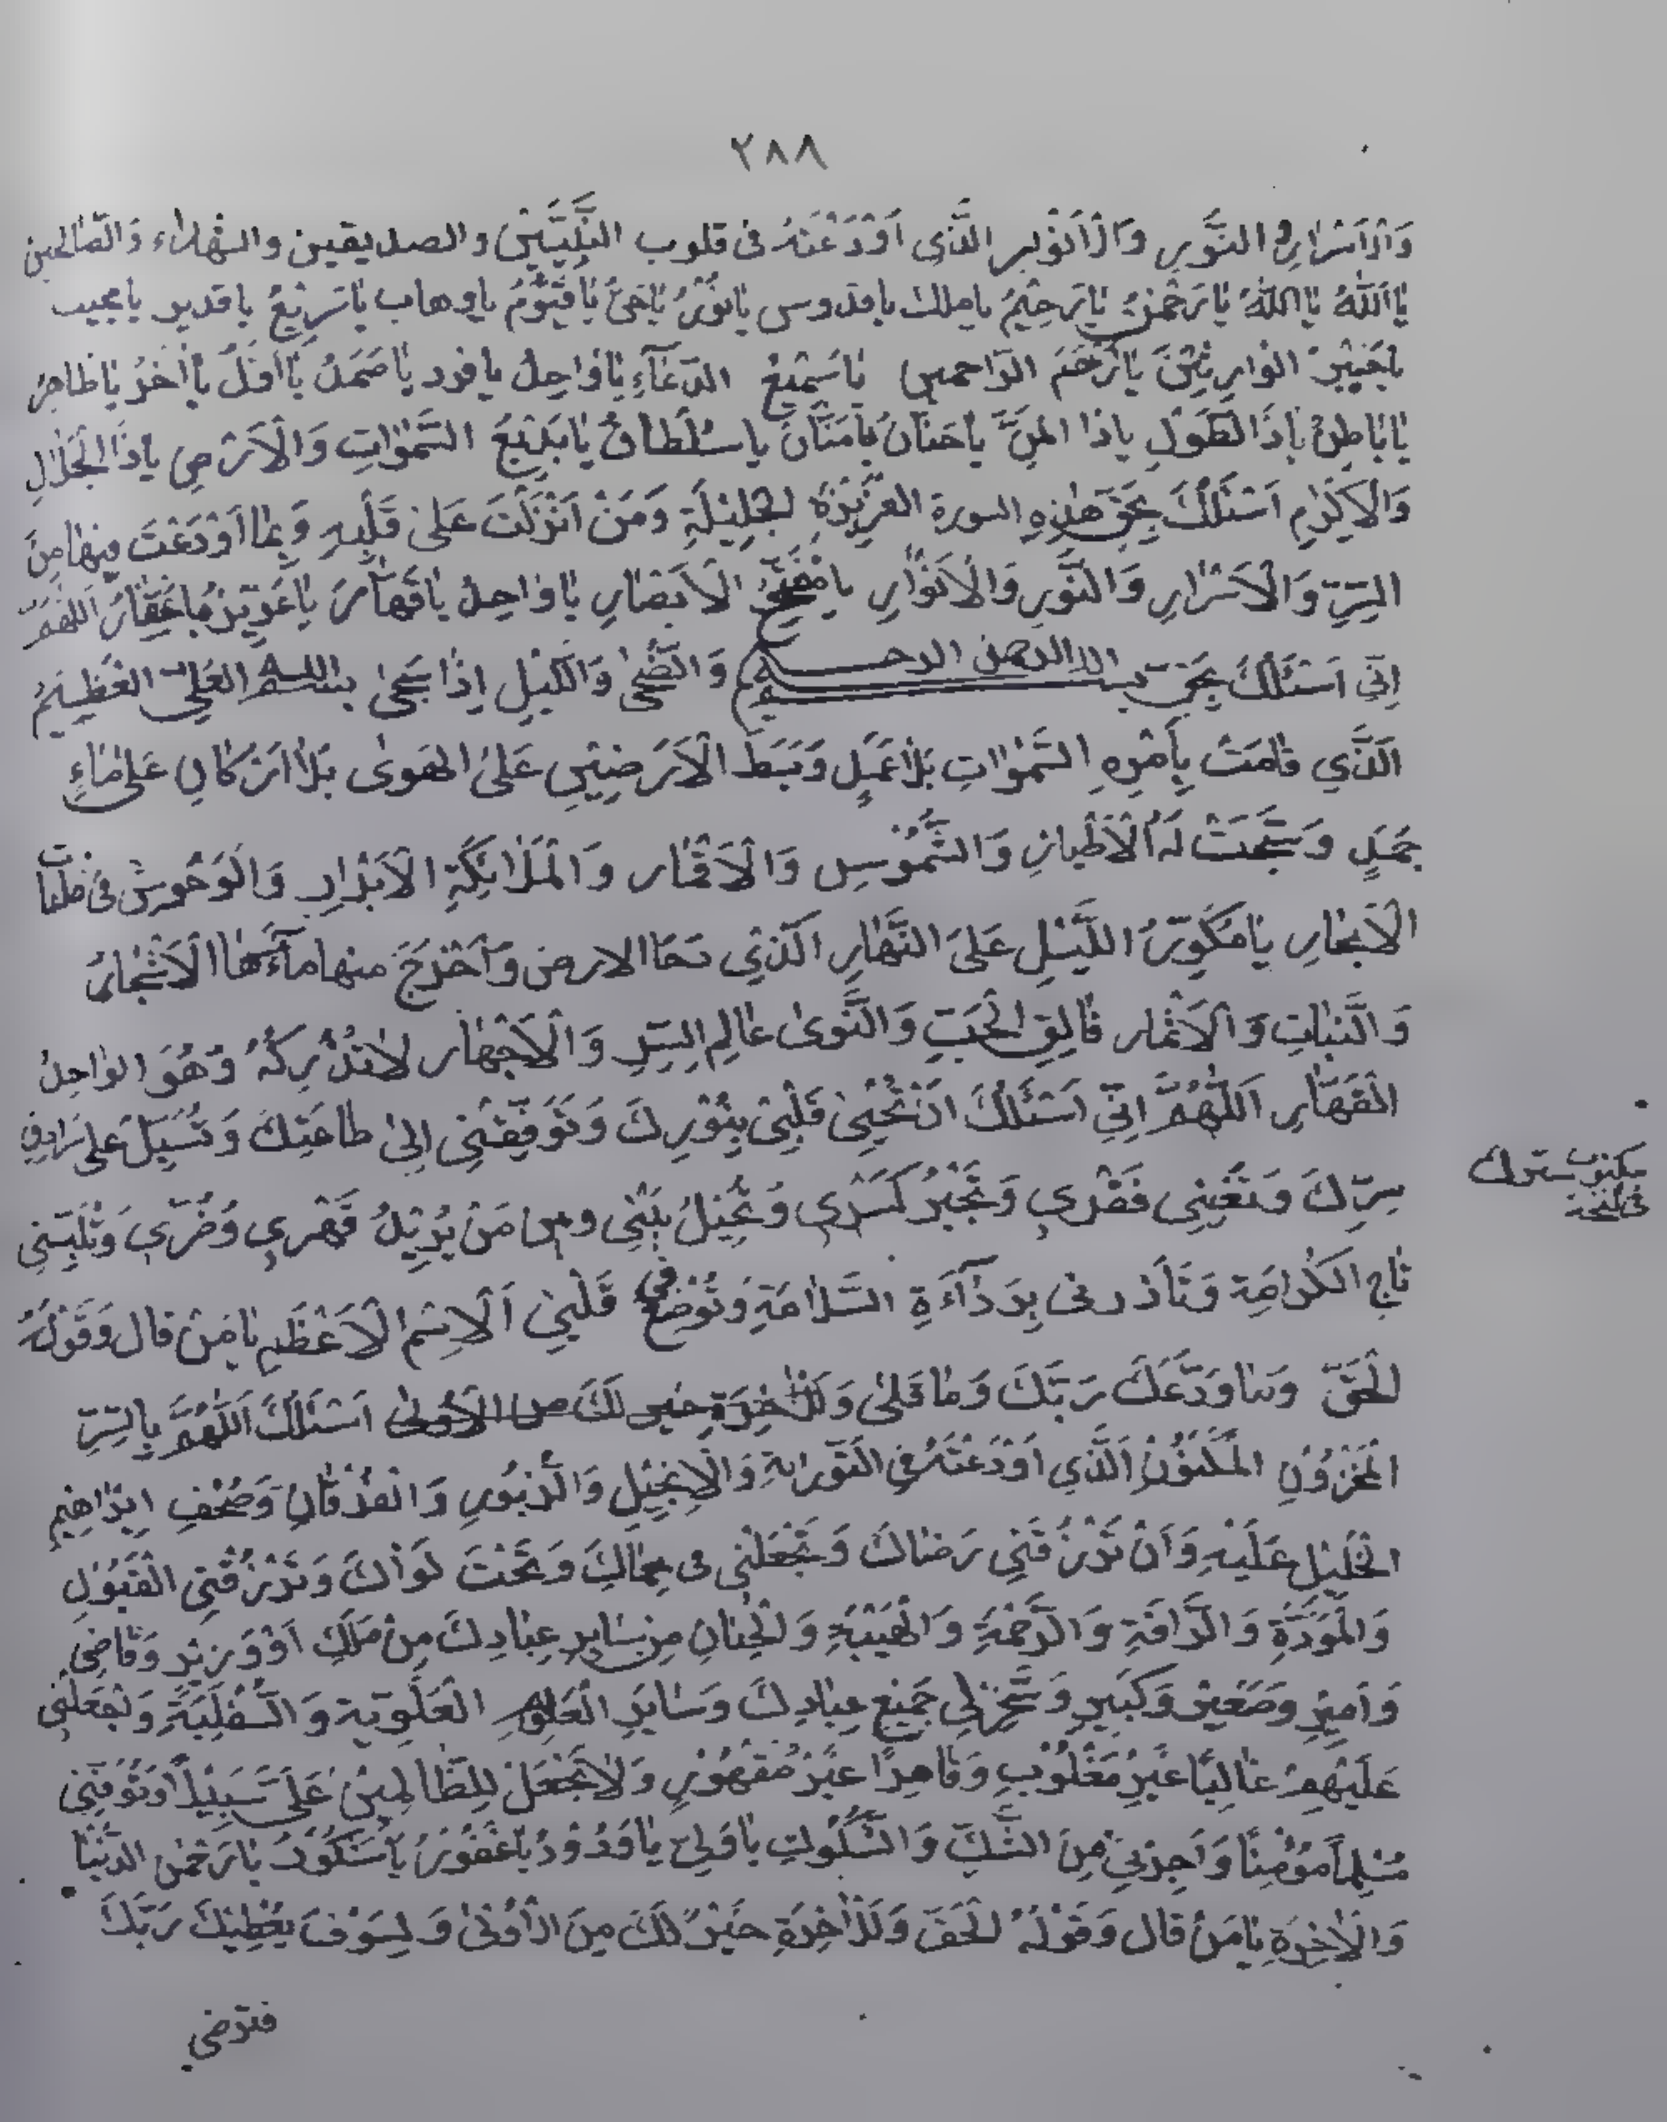 ٢٨٨
وَالْاَسْرَارِ وَ النُّورِ وَالْاَنْوَارِ الَّذِى اَوْدَعْتَهُ فى قلوب النَّبِيِّينَ والصديقين والشهداء وَالصَّالحين
يَا اَللّٰهُ يَا اللّٰهُ يَا رَحْمٰنُ يَا رَحِيْمُ يا ملك يا قدوس يَا نُوْرُ يَا حَىُّ يَا قَيُّوْمُ يا وهاب يَا سَرِيْعُ يا قدير يا مجيب
يا خَيْرَ الْوَارِثِيْنَ يَا اَرْحَمَ الرّاحمين يَا سَمِيْعُ الدُّعَآءِ يَا وَاحِدُ يا فرد يَا صَمَدُ يَا اَوَّلُ يَا اٰخِرُ يَا ظَاهِرُ
يَا بَاطِنُ يَا ذَا الطَّوْلِ يا ذا المنِّ يَا حَنَّانُ يَا مَنَّانُ يا سُلْطَانُ يَا بَدِيْعَ السَّمٰوَاتِ وَالْاَرْضِ يَا ذَا الْجَلَالِ
وَالْاِكْرَامِ اَسْئَلُكَ بِحَقِّ هٰذِهِ السورة الْعَزِيْزَةِ الجَلِيْلَةِ وَمَنْ اَنْزَلْتَ عَلىٰ قَلْبِهِ وَبِمَا اَوْدَعْتَ فِيْهَا مِنَ
السِّرِّ وَالْاَسْرَارِ وَالنُّوْرِ وَالْاَنْوَارِ يا الْاَبْصَارِ يَا وَاحِدُ يَا قَهَّارُ يَا عَزِيْزُ يَا غَفَّارُ اَللّٰهُمَّ
اِنِّى اَسْئَلُكَ بِحَقِّ بسم الله الرحمن الرحيم وَالضُّحٰى وَاللَّيْلِ اِذَا سَجىٰ بسم اللّٰه الْعَلِىِّ الْعَظِيْمُ
اَلَّذِى قَامَتْ بِاَمْرِهِ السَّمٰوَاتِ بَلَا عَمَدٍ وَبَسَطَ الْاَرَضِيْنِ عَلىٰ الهَوىٰ بَلَا اَرْكَانِ عَلىٰ مَاءٍ
جَمَدٍ وَسَبَّحَتْ لَهُ الْاَطْيَارِ وَالشُّمُوْسِ وَالْاَقْمَار وَالْمَلَائِكَةِ الْاَبْرَارِ وَالْوُحُوْشِ فى ظلمات
الْاَبْحَارِ يَا مُكَوِّرُ اللَّيْلِ عَلىَ النَّهَارِ اَلَّذِى دَحَا الارض وَاَخْرَجَ منها مَآءَهَا الْاَشْجَارُ
وَالنَّبَاتِ وَالْاَثْمَار فَالِقِ الحَبِّ وَالنَّوىٰ عَالِمِ السِّرِّ وَالْاَجْهَار لَا تُدْرِكُهُ وَهُوَ الْوَاحِدُ
الْقَهَّارِ اَللّٰهُمَّ اِنِّى اَسْئَلُكَ اَنْ تُحْيِىْ قَلْبِىْ بِنُوْرِكَ وَتُوَفِّقْنِى اِلىٰ طَاعَتِكَ وَتُسْبِلَ عَلىَّ
سِرِّكَ وَتُغْنِى فَقْرِى وَتَجْبُرُ كَسْرِى وَ بَيْنِى وبين مَنْ يُرِيْدُ قَهْرِى وَضُرِّى وَتُلَبِّسْنِى
مكتوب سترك
فى نسخة
تَاج الكَرَامَة وَ بِرَدَآءَةِ السَّلَامَةِ وَتُوْضَعُ فِى قَلْبِىْ اَلْاِسْمِ الْاَعْظَمِ يَا مَنْ قال وَقَوْلُهُ
الحَقّ وَمَا وَدَّعَكَ رَبُّكَ وَمَا قَلىٰ وَلَلْاٰخِرَةِ خير لَكَ من الْاُوْلىٰ اَسْئَلُكَ اَللّٰهُمَّ بِالسِّرِّ
الْمَخْزُوْنِ الْمَكْنُوْنِ الَّذِى اَوْدَعْتَهُ فِى التَّوْرَاةِ وَالْاِنْجِيْلِ وَالزَّبُوْرِ وَالْفُرْقَانِ وَصُحْفِ اِبْرَاهِيْمِ
الخَلِيْلِ عَلَيْهِ وَاَنْ تَرْزُقَنِى رَضَاكَ وَتَجْعَلْنِى فى حِمَاكَ وَتَحْتَ لِوَاكَ وَتَرْزُقْنِى الْقَبُوْلِ
وَالْمَوَدَّةِ وَالرَّأْفَةِ وَالرَّحْمَةِ وَالْهَيْبَةِ وَ مِنْ سَايِرِ عِبَادِكَ مِنْ مَلَكٍ اَوْ وَزِيْرٍ وَقَاضِى
وَاَمِيْرٍ وَصَغِيْرٍ وَكَبِيْرٍ وَسَخِّرْ لِى جَمِيْعِ عِبَادِكَ وَسَايِرِ الْعَوَالِمِ الْعَلَوِيّة وَالسُّفْلِيَّةِ وَتَجْعَلْنِى
عَلَيْهِمْ غَالِبًا غَيْرُ مَغْلُوْبٍ وَقَاهِرًا غَيْرُ مَقْهُوْرٍ وَلَا تَجْعَلْ لِلظَّالِمِيْنَ عَلَىَّ سَبِيْلًا وَتُوَفَّنِى
مُسْلِمًا مُؤْمِنًا وَاَجِرْنِى مِنَ الشَّكِّ وَالشُّكُوْكِ يَا وَلِىُّ يَا وَدُوْدُ يَا غَفُوْرُ يَا شَكُوْرُ يَا رَحْمٰن الدُّنْيَا
وَالْاٰخِرَةِ يَا مَنْ قال وَقَوْلُهُ الحَقّ وَلَلْاٰخِرَةِ خَيْرٌ لَكَ مِنَ الْاُوْلىٰ وَلَسَوْفَ يُعْطِيْكَ رَبُّكَ
فترضى